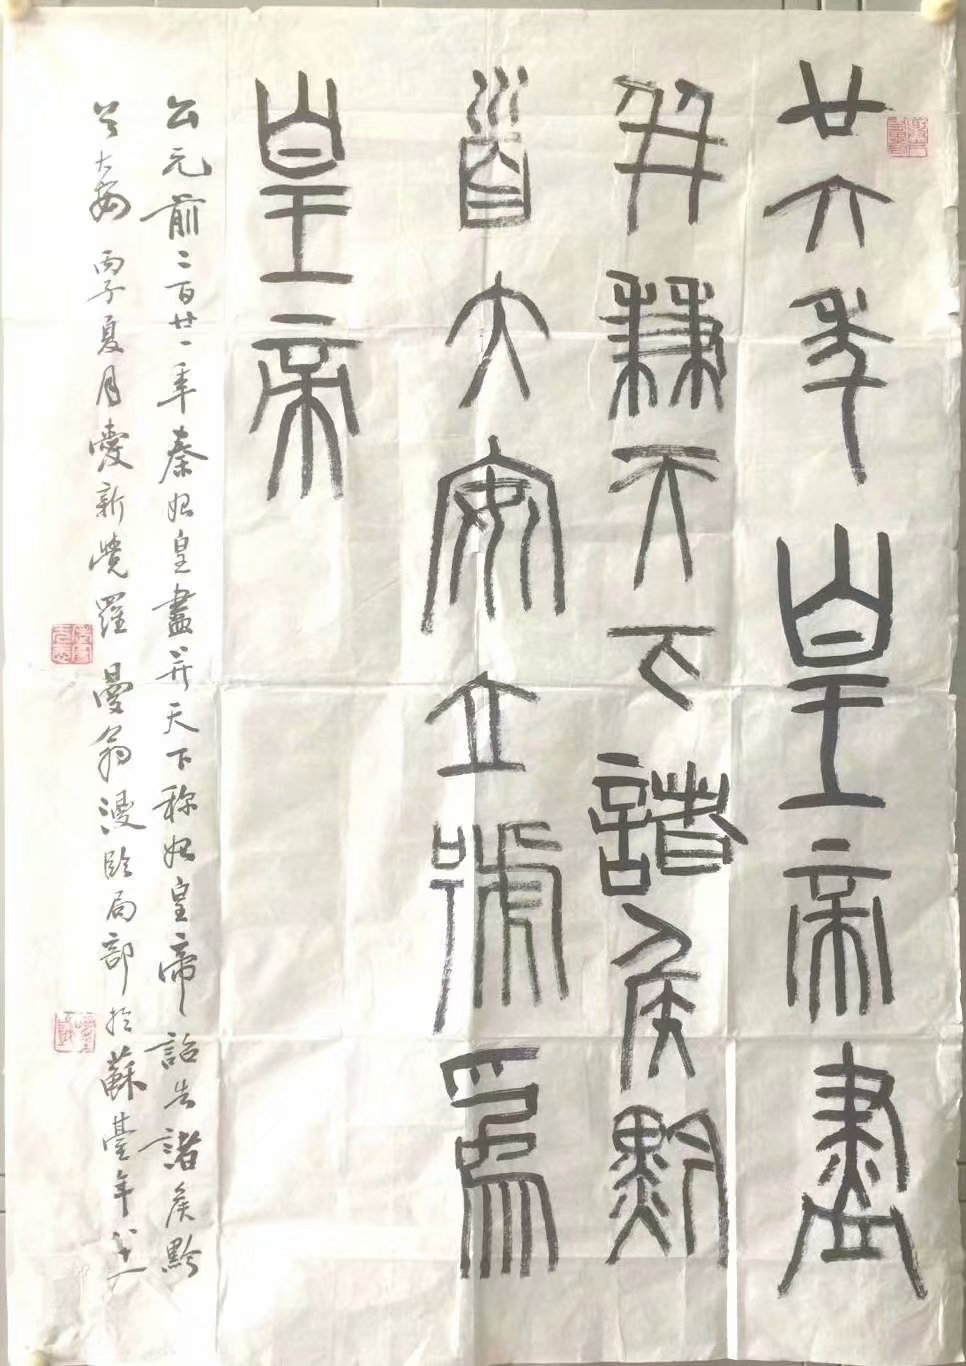 廿六年皇帝盡
并兼天下諸侯黔
首大安立號為
皇帝
公元前二百廿一年秦始皇盡并天下称始皇帝詔告諸侯黔
首大安丙子夏月愛新覺羅曼翁漫臨局部於蘇臺年八十一